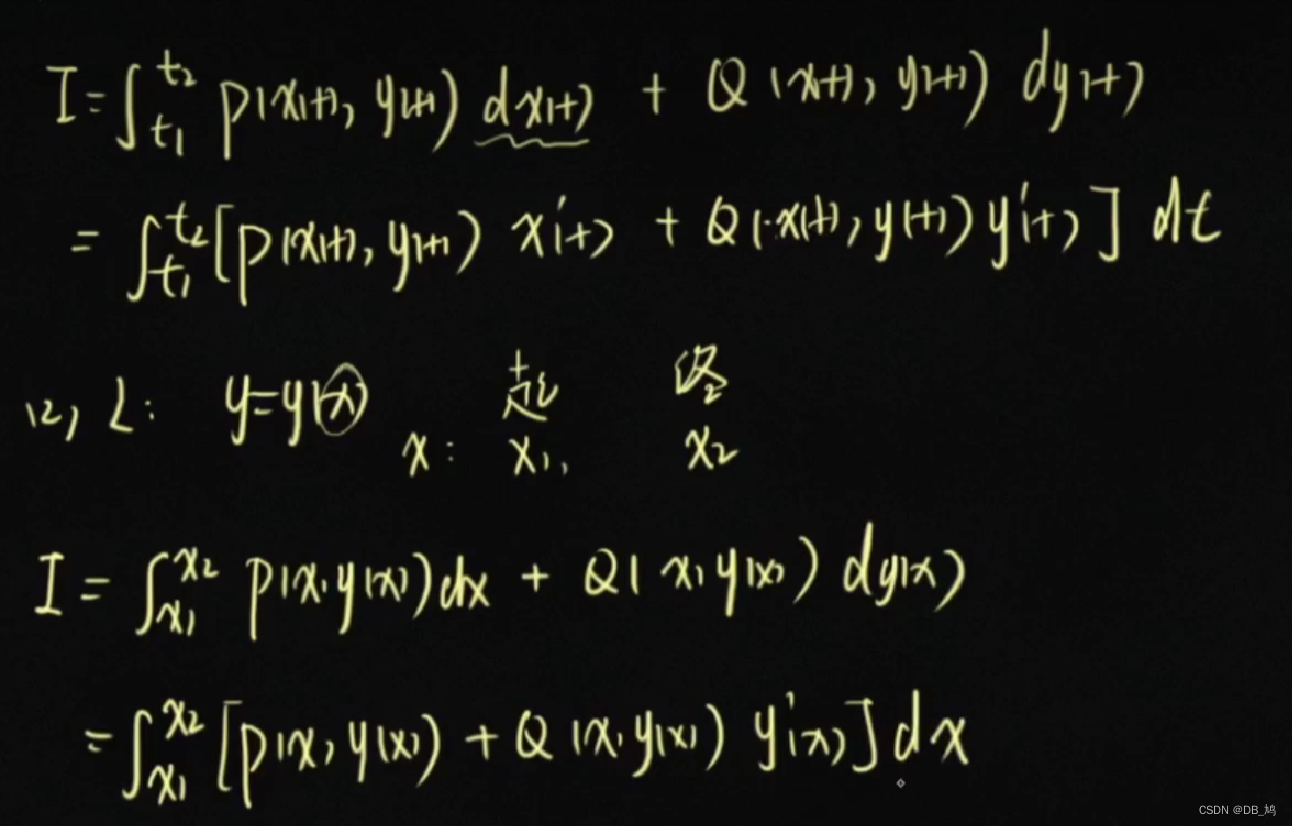 I = ∫_{t₁}^{t₂} P(x(t), y(t)) dx(t) + Q(x(t), y(t)) dy(t)
= ∫_{t₁}^{t₂} [P(x(t), y(t)) x'(t) + Q(x(t), y(t)) y'(t)] dt
(2) L: y=y(x) x: 起 x₁, 终 x₂
I = ∫_{x₁}^{x₂} P(x, y(x)) dx + Q(x, y(x)) dy(x)
= ∫_{x₁}^{x₂} [P(x, y(x)) + Q(x, y(x)) y'(x)] dx
CSDN @DB_鸠